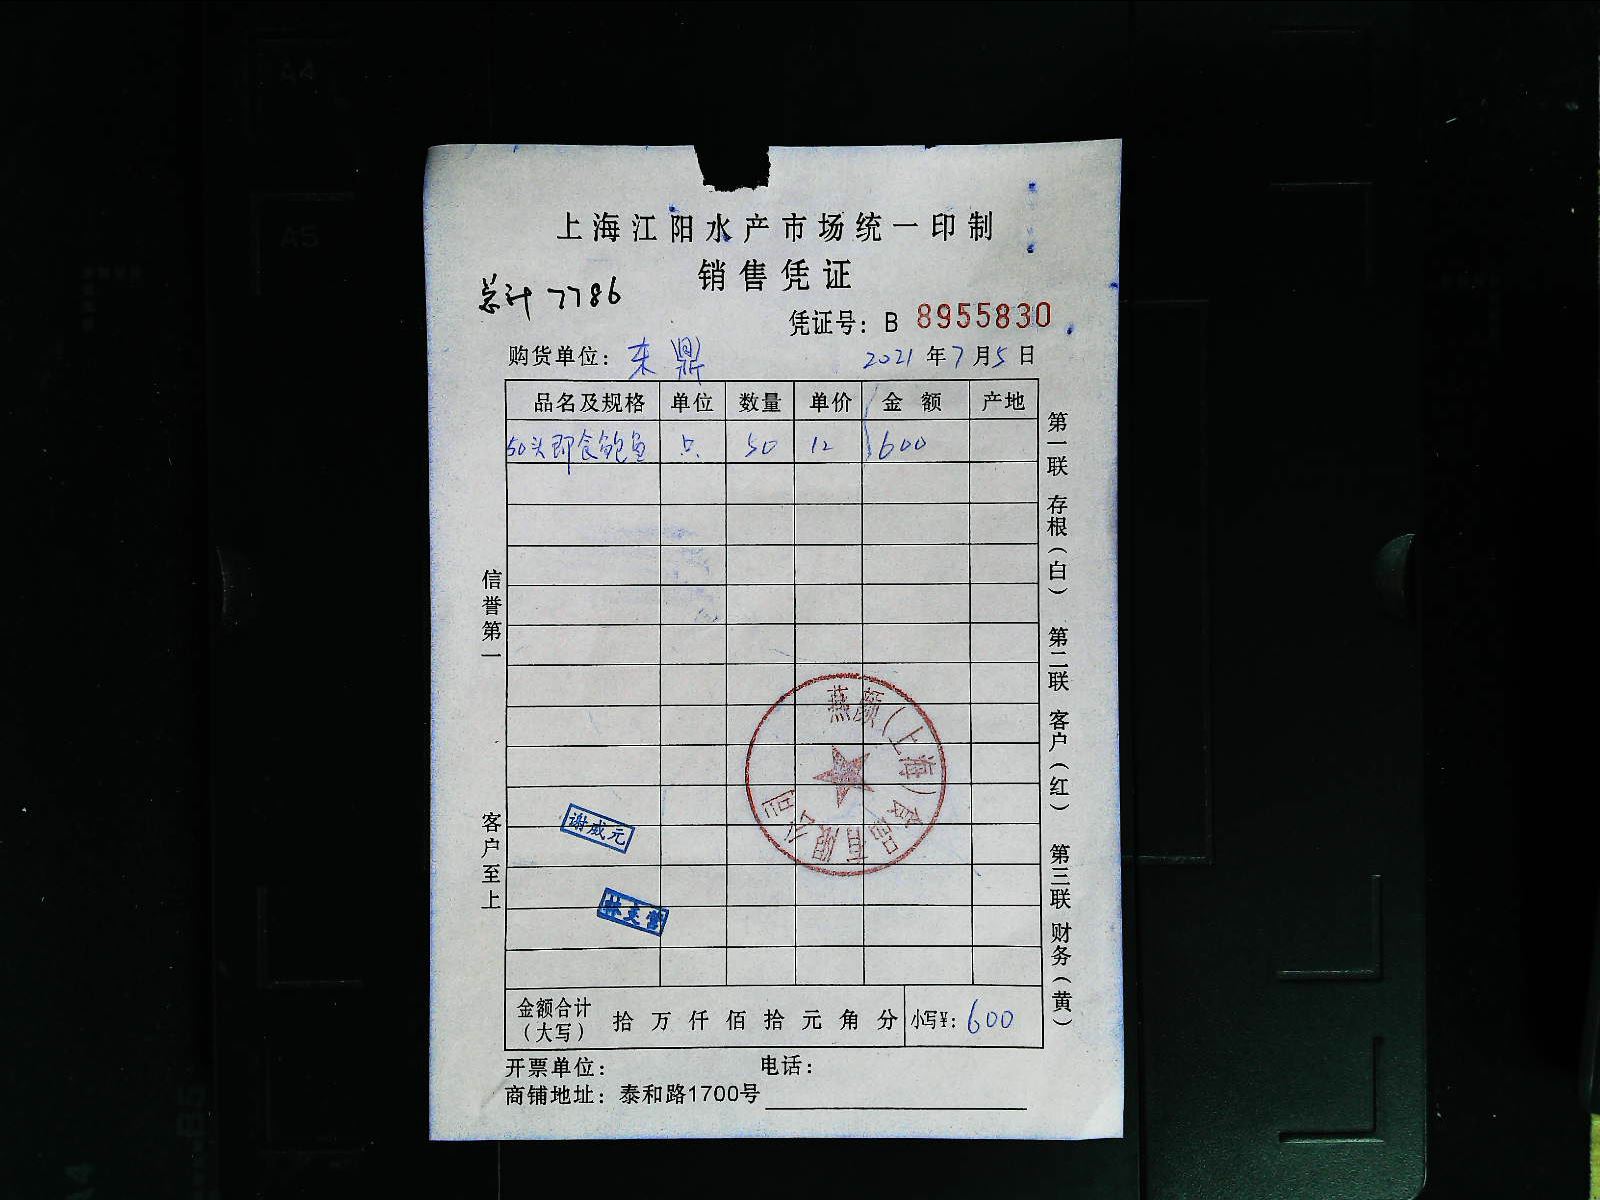 上海江阳水产市场统一印制
销售凭证
总计 7786
凭证号：B 8955830
购货单位：东鼎 2021年7月5日
品名及规格 单位 数量 单价 金额 产地
50头即食鲍鱼 只 50 12 600
信誉第一
客户至上
第一联 存根（白） 第二联 客户（红） 第三联 财务（黄）
燕颜（上海）食品有限公司
谢威元
金额合计（大写） 拾 万 仟 佰 拾 元 角 分 小写¥：600
开票单位： 电话：
商铺地址：泰和路1700号
A4
A5
B5
A4